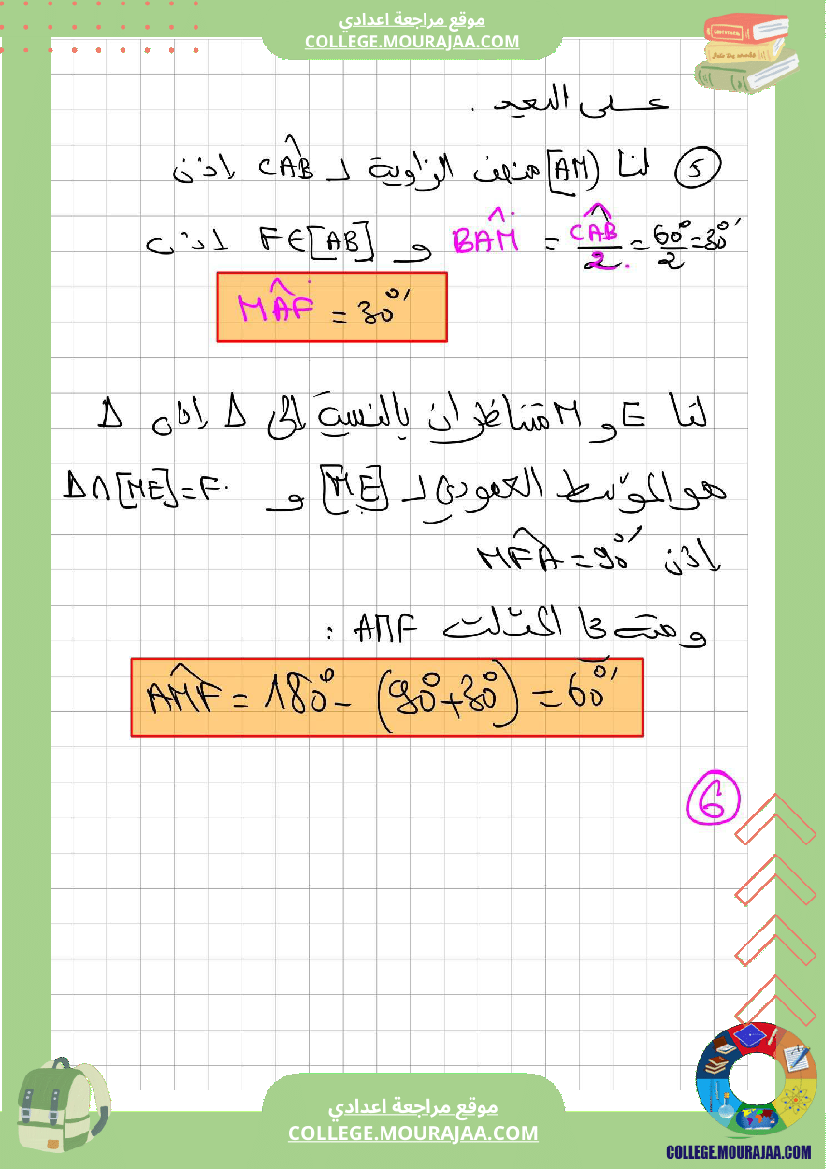 موقع مراجعة اعدادي
COLLEGE.MOURAJAA.COM
على البعد .
⑤ لنا [AM) منصف الزاوية لـ CÂB إذن
BÂM = CÂB/2 = 60°/2 = 30° و F∈[AB] إذن
MÂF = 30°
لنا E و M متناظران بالنسبة إلى Δ إذن Δ
هو الموسط العمودي لـ [ME] و Δ∩[ME]=F.
إذن MF̂A = 90°
ومنه في المثلث AMF :
AM̂F = 180° - (90°+30°) = 60°
⑥
موقع مراجعة اعدادي
COLLEGE.MOURAJAA.COM
COLLEGE.MOURAJAA.COM